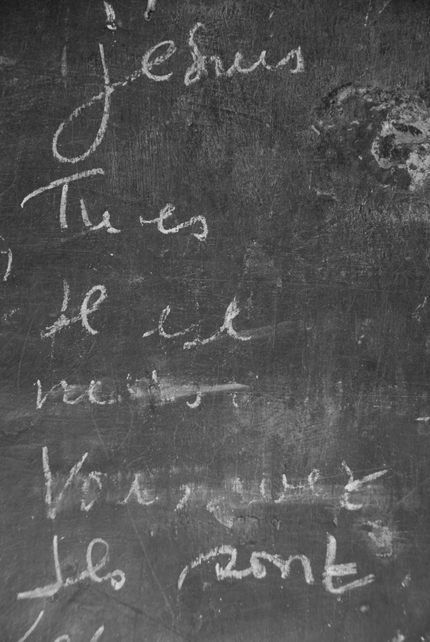 je suis
Tu es
Il est
nous
Vous
Ils sont